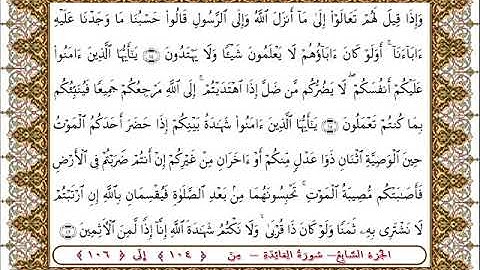 وَإِذَا قِيلَ لَهُمْ تَعَالَوْا۟ إِلَىٰ مَآ أَنزَلَ ٱللَّهُ وَإِلَى ٱلرَّسُولِ قَالُوا۟ حَسْبُنَا مَا وَجَدْنَا عَلَيْهِ
ءَابَآءَنَآ ۚ أَوَلَوْ كَانَ ءَابَآؤُهُمْ لَا يَعْلَمُونَ شَيْـًٔا وَلَا يَهْتَدُونَ ﴿١٠٤﴾ يَـٰٓأَيُّهَا ٱلَّذِينَ ءَامَنُوا۟
عَلَيْكُمْ أَنفُسَكُمْ ۖ لَا يَضُرُّكُم مَّن ضَلَّ إِذَا ٱهْتَدَيْتُمْ ۚ إِلَى ٱللَّهِ مَرْجِعُكُمْ جَمِيعًا فَيُنَبِّئُكُم
بِمَا كُنتُمْ تَعْمَلُونَ ﴿١٠٥﴾ يَـٰٓأَيُّهَا ٱلَّذِينَ ءَامَنُوا۟ شَهَـٰدَةُ بَيْنِكُمْ إِذَا حَضَرَ أَحَدَكُمُ ٱلْمَوْتُ
حِينَ ٱلْوَصِيَّةِ ٱثْنَانِ ذَوَا عَدْلٍ مِّنكُمْ أَوْ ءَاخَرَانِ مِنْ غَيْرِكُمْ إِنْ أَنتُمْ ضَرَبْتُمْ فِى ٱلْأَرْضِ
فَأَصَـٰبَتْكُم مُّصِيبَةُ ٱلْمَوْتِ ۚ تَحْبِسُونَهُمَا مِنۢ بَعْدِ ٱلصَّلَوٰةِ فَيُقْسِمَانِ بِٱللَّهِ إِنِ ٱرْتَبْتُمْ
لَا نَشْتَرِى بِهِۦ ثَمَنًا وَلَوْ كَانَ ذَا قُرْبَىٰ ۙ وَلَا نَكْتُمُ شَهَـٰدَةَ ٱللَّهِ إِنَّآ إِذًا لَّمِنَ ٱلْـَٔاثِمِينَ ﴿١٠٦﴾
الجزء السابع – سورة المائدة – من ﴿ ١٠٤ ﴾ إلى ﴿ ١٠٦ ﴾